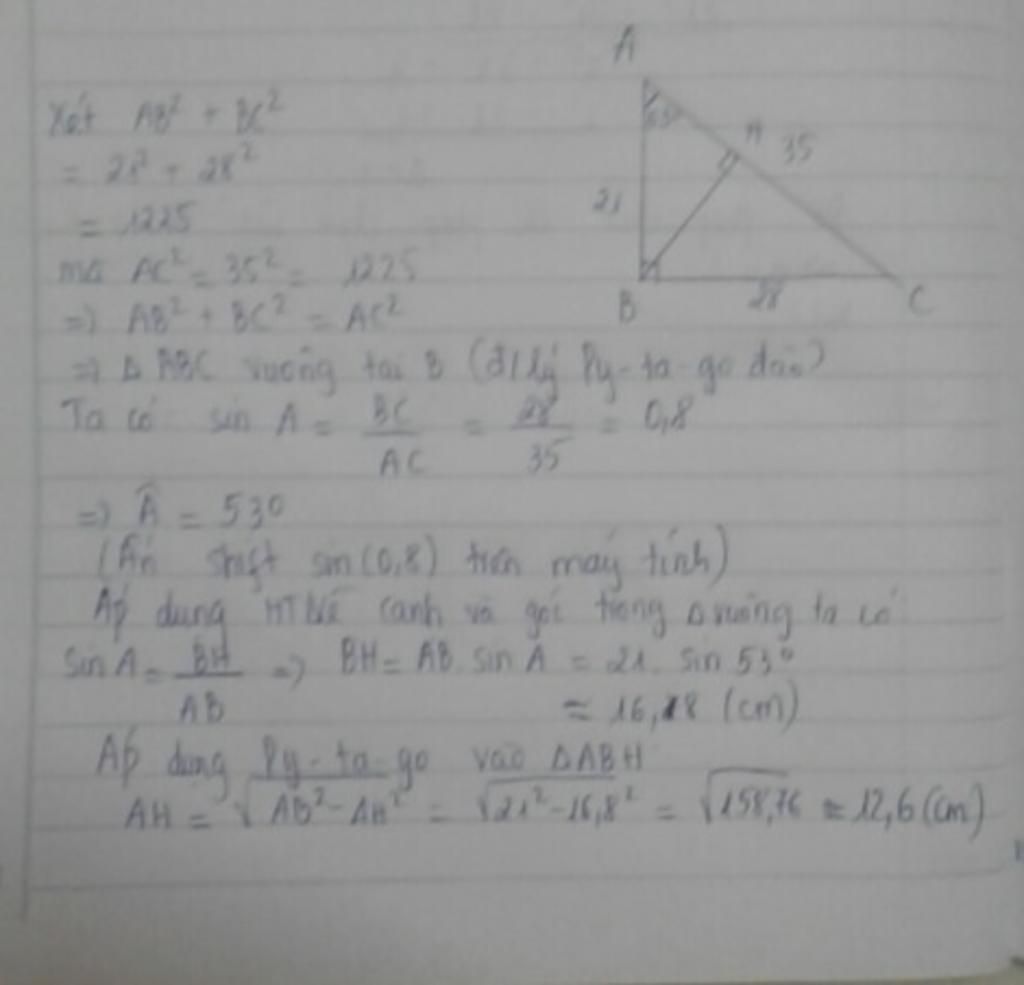 Xét AB² + BC²
= 21² + 28²
= 1225
mà AC² = 35² = 1225
=> AB² + BC² = AC²
=> Δ ABC vuông tại B (đ/lý Py-ta-go đảo)
Ta có sin A = BC/AC = 28/35 = 0,8
=> Â = 53°
(Ấn shift sin(0,8) trên máy tính)
Áp dụng HTVỀ cạnh và góc trong Δ vuông ta có
Sin A = BH/AB => BH = AB. sin A = 21. sin 53°
≈ 16,18 (cm)
Áp dụng Py-ta-go vào ΔABH
AH = √AB² - AH² = √21² - 16,8² = √158,76 ≈ 12,6 (cm)
A
H
35
21
B
28
C